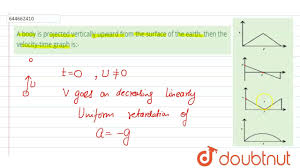 644662410
A body is projected vertically upward from the surface of the earth, then the
velocity-time graph is:-
t=0, U≠0
U
V goes on decreasing linearly
Uniform retardation of
a = -g
doubtnut